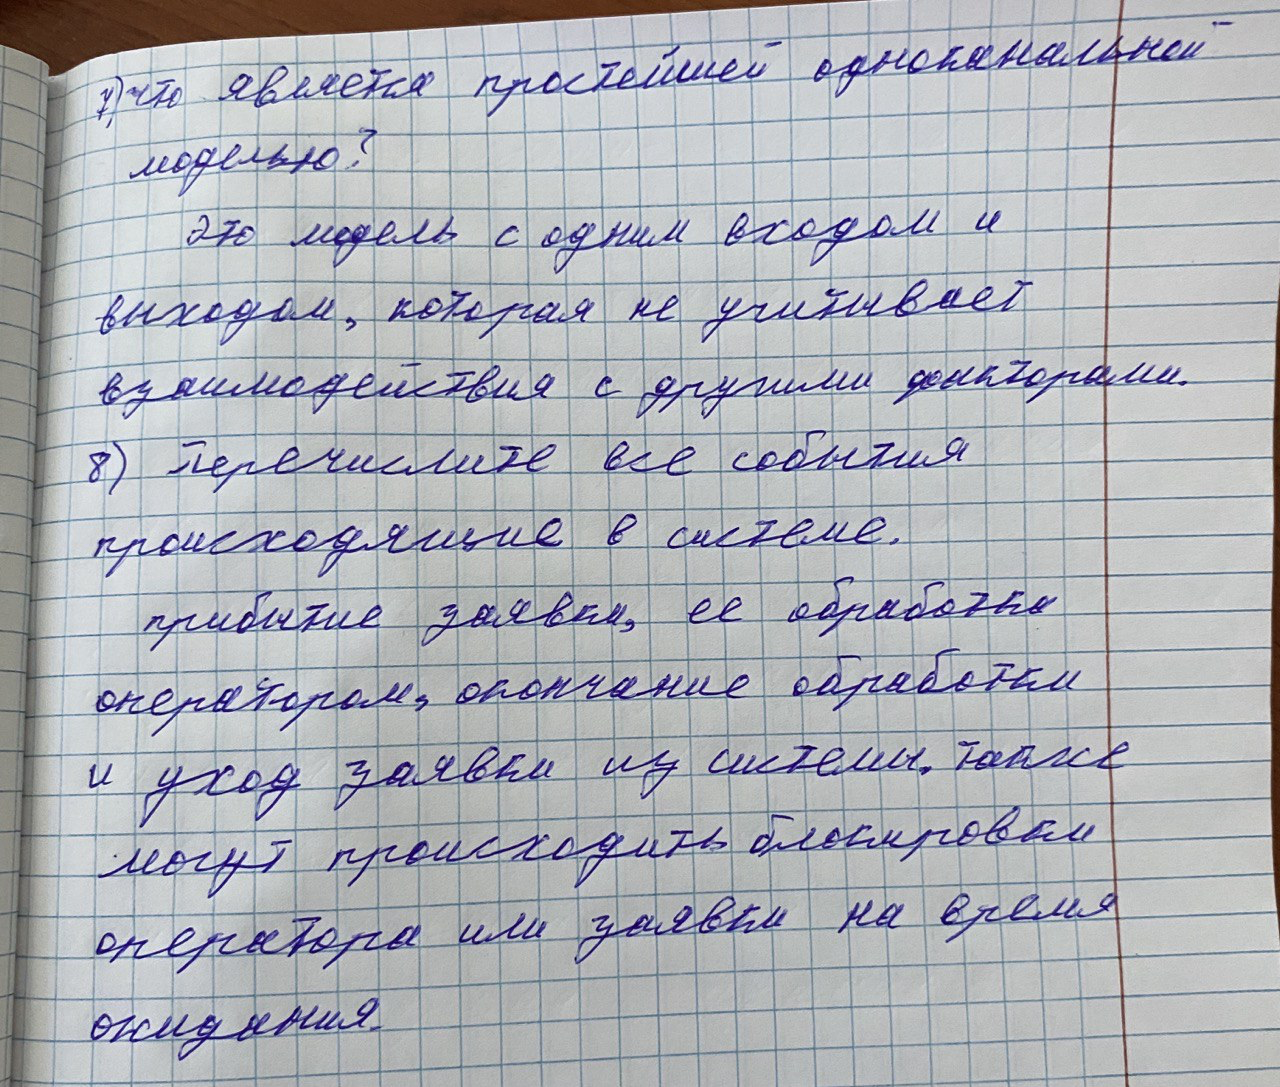 7) что является простейшей одноканальной
моделью?
Это модель с одним входом и
выходом, которая не учитывает
взаимодействия с другими факторами.
8) Перечислите все события
происходящие в системе.
прибытие заявки, ее обработка
оператором, окончание обработки
и уход заявки из системы. также
могут происходить блокировки
оператора или заявки на время
ожидания.